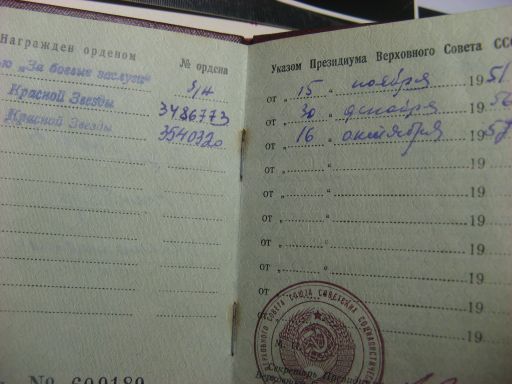 Награжден орденом
№ ордена
ю „За боевые заслуги“
б/н
Красной Звезды
3486773
Красной Звезды
3540320
№ 600189
Указом Президиума Верховного Совета ССС
от „ 15 “ ноября 1951
от „ 30 “ декабря 1956
от „ 16 “ октября 1957
от „ “ 19
от „ “ 19
от „ “ 19
от „ “ 19
от „ “ 19
от 19
19
ВЕРХОВНОГО СОВЕТА СОЮЗА СОВЕТСКИХ СОЦИАЛИСТИЧ
Секретарь